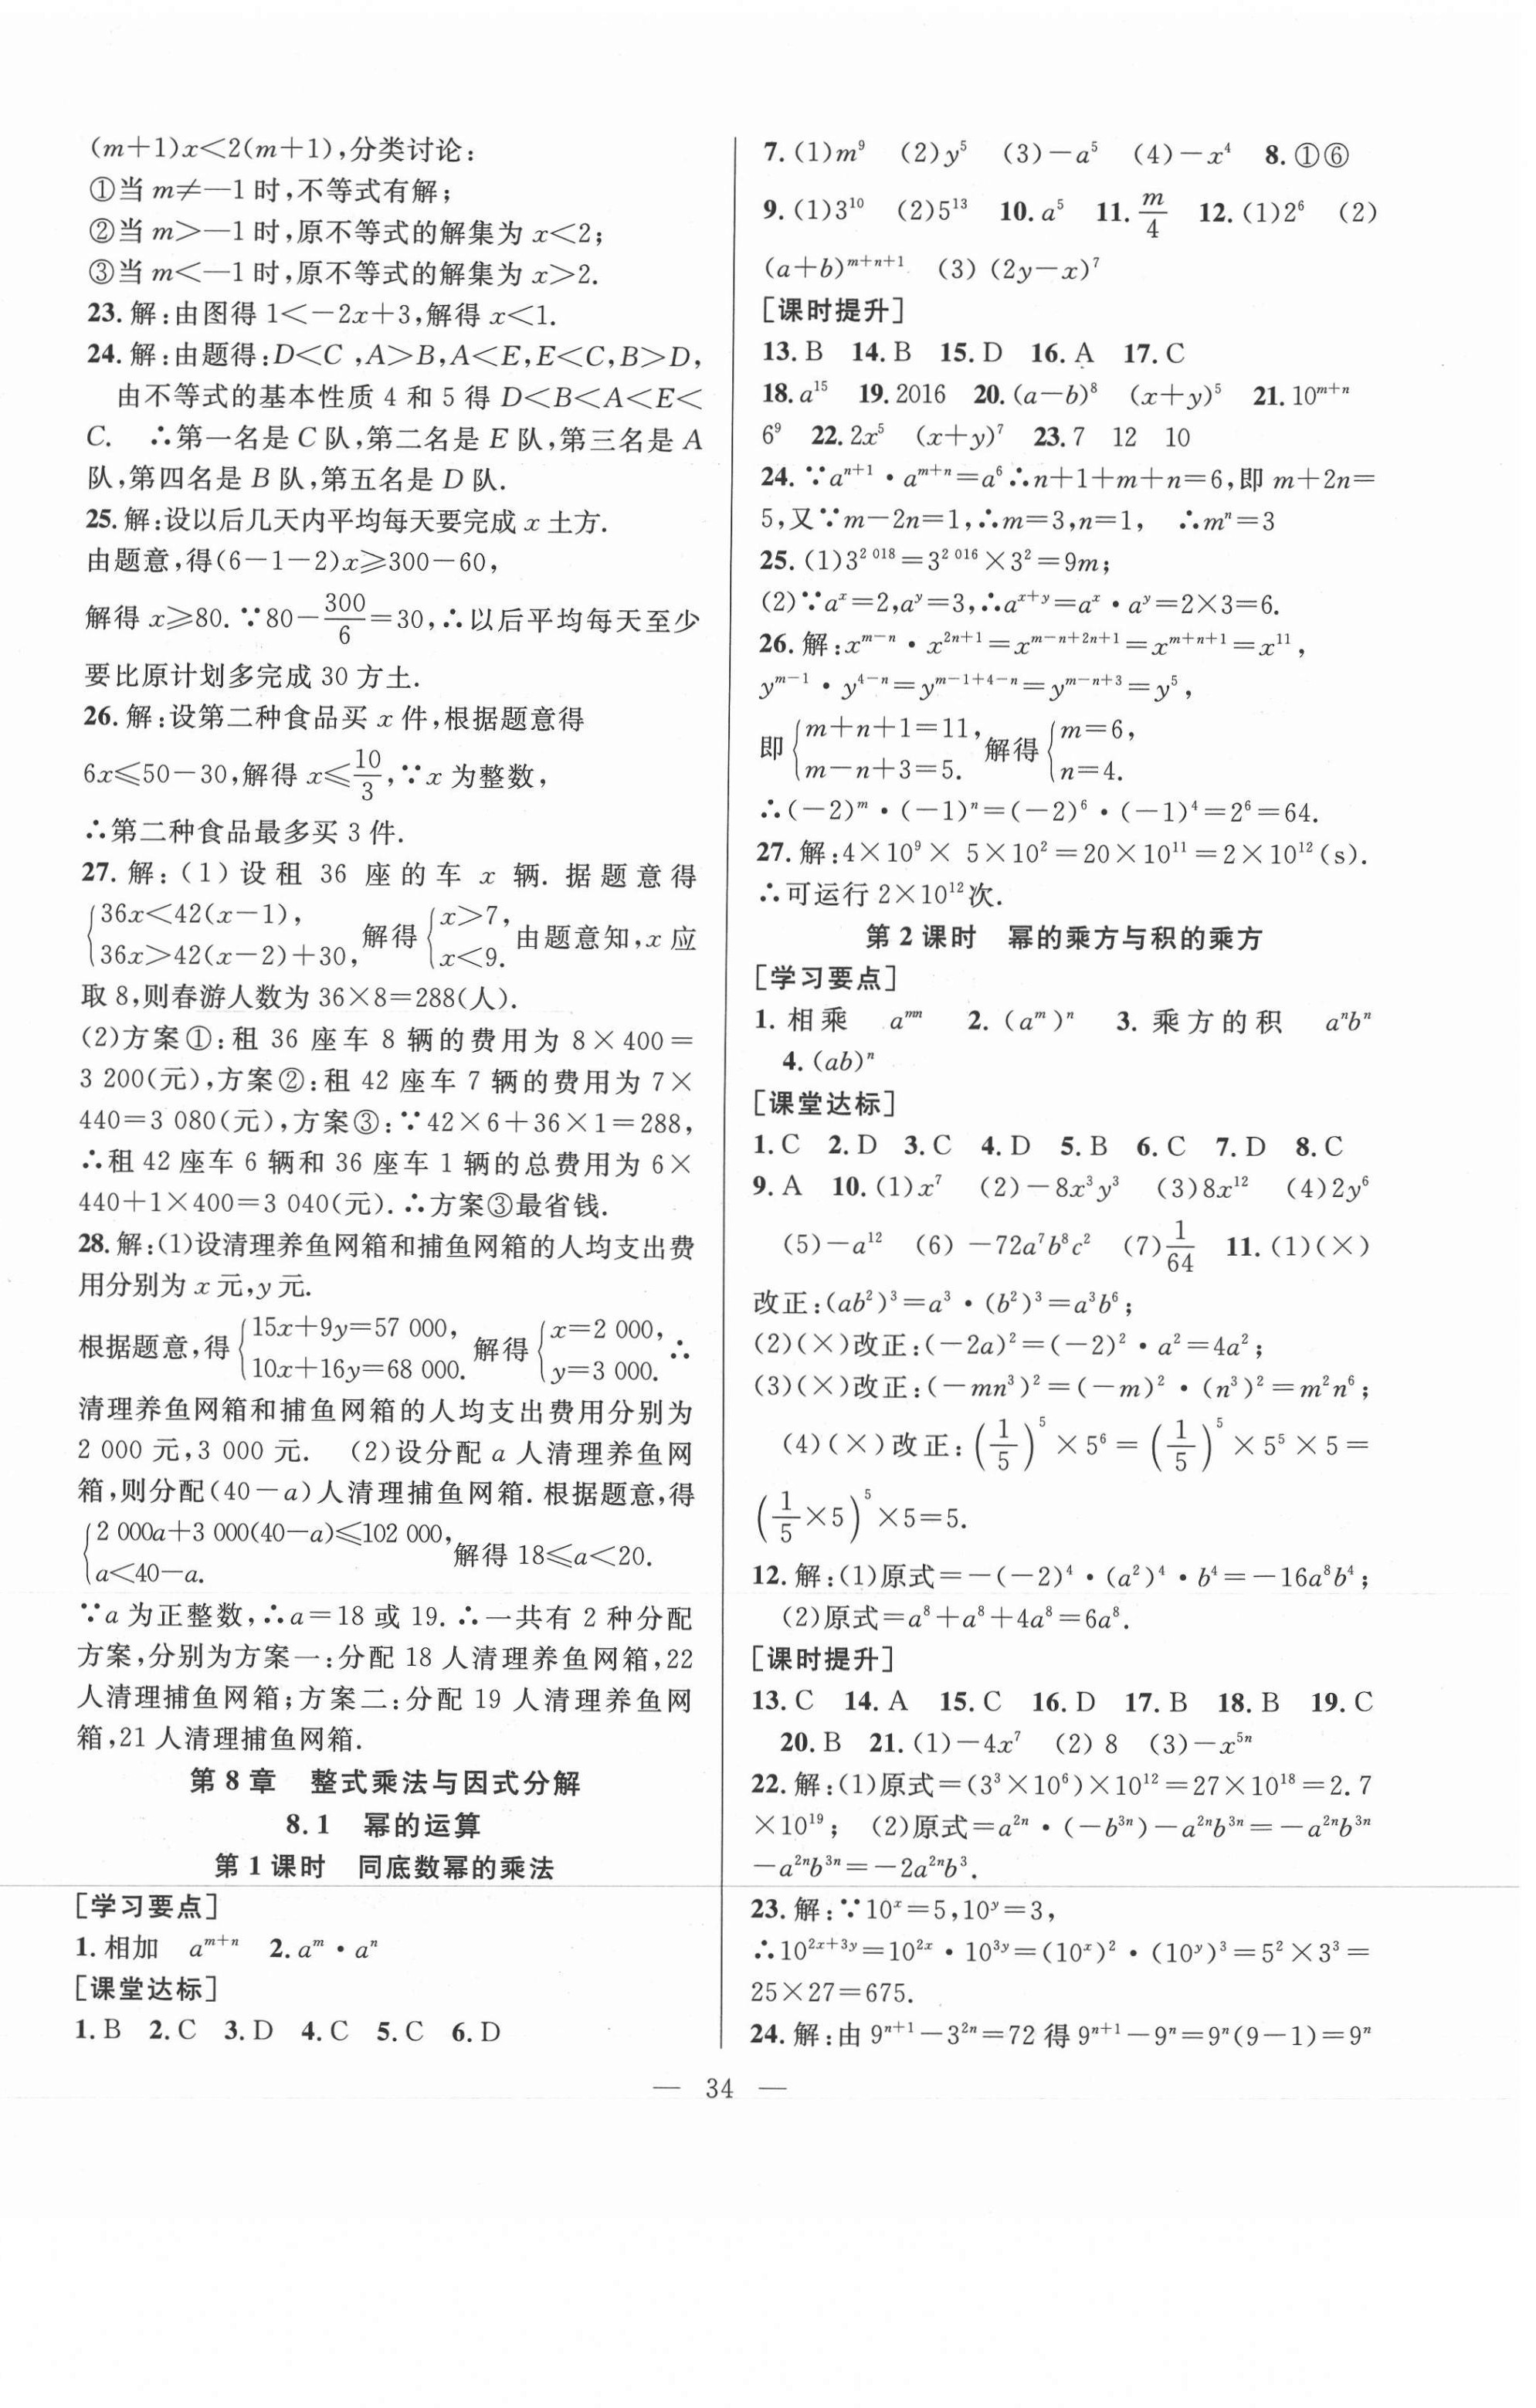 (m+1)x<2(m+1),分类讨论:
①当 m≠—1 时,不等式有解;
②当 m>—1 时,原不等式的解集为 x<2;
③当 m<—1 时,原不等式的解集为 x>2.
23.解:由图得 1<-2x+3,解得 x<1.
24.解:由题得:D<C ,A>B,A<E,E<C,B>D,
由不等式的基本性质 4 和 5 得 D<B<A<E<
C. ∴第一名是 C 队,第二名是 E 队,第三名是 A
队,第四名是 B 队,第五名是 D 队.
25.解:设以后几天内平均每天要完成 x 土方.
由题意,得(6-1-2)x≥300-60,
解得 x≥80. ∵80-\frac{300}{6}=30,∴以后平均每天至少
要比原计划多完成 30 方土.
26.解:设第二种食品买 x 件,根据题意得
6x≤50-30,解得 x≤\frac{10}{3},∵x 为整数,
∴第二种食品最多买 3 件.
27.解:(1)设租 36 座的车 x 辆. 据题意得
{36x<42(x-1), 36x>42(x-2)+30, 解得 {x>7, x<9. 由题意知,x 应
取 8,则春游人数为 36×8=288(人).
(2)方案①:租 36 座车 8 辆的费用为 8×400=
3 200(元),方案②:租 42 座车 7 辆的费用为 7×
440=3 080(元),方案③:∵42×6+36×1=288,
∴租 42 座车 6 辆和 36 座车 1 辆的总费用为 6×
440+1×400=3 040(元).∴方案③最省钱.
28.解:(1)设清理养鱼网箱和捕鱼网箱的人均支出费
用分别为 x 元,y 元.
根据题意,得 {15x+9y=57 000, 10x+16y=68 000. 解得 {x=2 000, y=3 000. ∴
清理养鱼网箱和捕鱼网箱的人均支出费用分别为
2 000 元,3 000 元. (2)设分配 a 人清理养鱼网
箱,则分配(40-a)人清理捕鱼网箱. 根据题意,得
{2 000a+3 000(40-a)≤102 000, a<40-a. 解得 18≤a<20.
∵a 为正整数,∴a=18 或 19.∴一共有 2 种分配
方案,分别为方案一:分配 18 人清理养鱼网箱,22
人清理捕鱼网箱;方案二:分配 19 人清理养鱼网
箱,21 人清理捕鱼网箱.
第 8 章 整式乘法与因式分解
8.1 幂的运算
第 1 课时 同底数幂的乘法
[学习要点]
1.相加 a^{m+n} 2.a^m·a^n
[课堂达标]
1.B 2.C 3.D 4.C 5.C 6.D
7.(1)m^9 (2)y^5 (3)-a^5 (4)-x^4 8.①⑥
9.(1)3^{10} (2)5^{13} 10.a^5 11.\frac{m}{4} 12.(1)2^6 (2)
(a+b)^{m+n+1} (3) (2y-x)^7
[课时提升]
13.B 14.B 15.D 16.A 17.C
18.a^{15} 19.2016 20.(a-b)^8 (x+y)^5 21.10^{m+n}
6^9 22.2x^5 (x+y)^7 23.7 12 10
24.∵a^{n+1}·a^{m+n}=a^6∴n+1+m+n=6,即 m+2n=
5,又∵m-2n=1,∴m=3,n=1, ∴m^n=3
25.(1)3^{2 018}=3^{2 016}×3^2=9m;
(2)∵a^x=2,a^y=3,∴a^{x+y}=a^x·a^y=2×3=6.
26.解:x^{m-n}·x^{2n+1}=x^{m-n+2n+1}=x^{m+n+1}=x^{11},
y^{m-1}·y^{4-n}=y^{m-1+4-n}=y^{m-n+3}=y^5,
即 {m+n+1=11, m-n+3=5. 解得 {m=6, n=4.
∴(-2)^m·(-1)^n=(-2)^6·(-1)^4=2^6=64.
27.解:4×10^9× 5×10^2=20×10^{11}=2×10^{12}(s).
∴可运行 2×10^{12}次.
第 2 课时 幂的乘方与积的乘方
[学习要点]
1.相乘 a^{mn} 2.(a^m)^n 3.乘方的积 a^nb^n
4.(ab)^n
[课堂达标]
1.C 2.D 3.C 4.D 5.B 6.C 7.D 8.C
9.A 10.(1)x^7 (2)-8x^3y^3 (3)8x^{12} (4)2y^6
(5)-a^{12} (6) -72a^7b^8c^2 (7)\frac{1}{64} 11.(1)(×)
改正:(ab^2)^3=a^3·(b^2)^3=a^3b^6;
(2)(×)改正:(-2a)^2=(-2)^2·a^2=4a^2;
(3)(×)改正:(-mn^3)^2=(-m)^2·(n^3)^2=m^2n^6;
(4)(×)改正:(\frac{1}{5})^5×5^6=(\frac{1}{5})^5×5^5×5=
(\frac{1}{5}×5)^5×5=5.
12.解:(1)原式=-(-2)^4·(a^2)^4·b^4=-16a^8b^4;
(2)原式=a^8+a^8+4a^8=6a^8.
[课时提升]
13.C 14.A 15.C 16.D 17.B 18.B 19.C
20.B 21.(1)-4x^7 (2) 8 (3)-x^{5n}
22.解:(1)原式=(3^3×10^6)×10^{12}=27×10^{18}=2.7
×10^{19}; (2)原式=a^{2n}·(-b^{3n})-a^{2n}b^{3n}=-a^{2n}b^{3n}
-a^{2n}b^{3n}=-2a^{2n}b^3.
23.解:∵10^x=5,10^y=3,
∴10^{2x+3y}=10^{2x}·10^{3y}=(10^x)^2·(10^y)^3=5^2×3^3=
25×27=675.
24.解:由 9^{n+1}-3^{2n}=72 得 9^{n+1}-9^n=9^n(9-1)=9^n
— 34 —